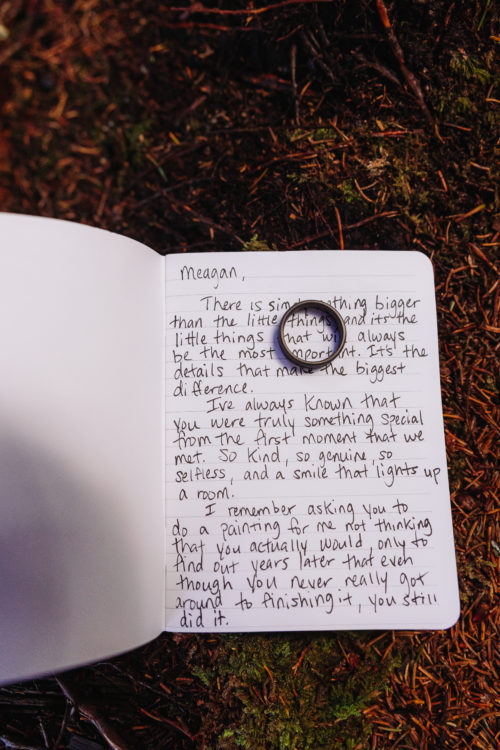 Meagan,
There is simply nothing bigger
than the little things and it's the
little things that will always
be the most important. It's the
details that make the biggest
difference.
I've always known that
you were truly something special
from the first moment that we
met. So kind, so genuine, so
selfless, and a smile that lights up
a room.
I remember asking you to
do a painting for me not thinking
that you actually would, only to
find out years later that even
though you never really got
around to finishing it, you still
did it.